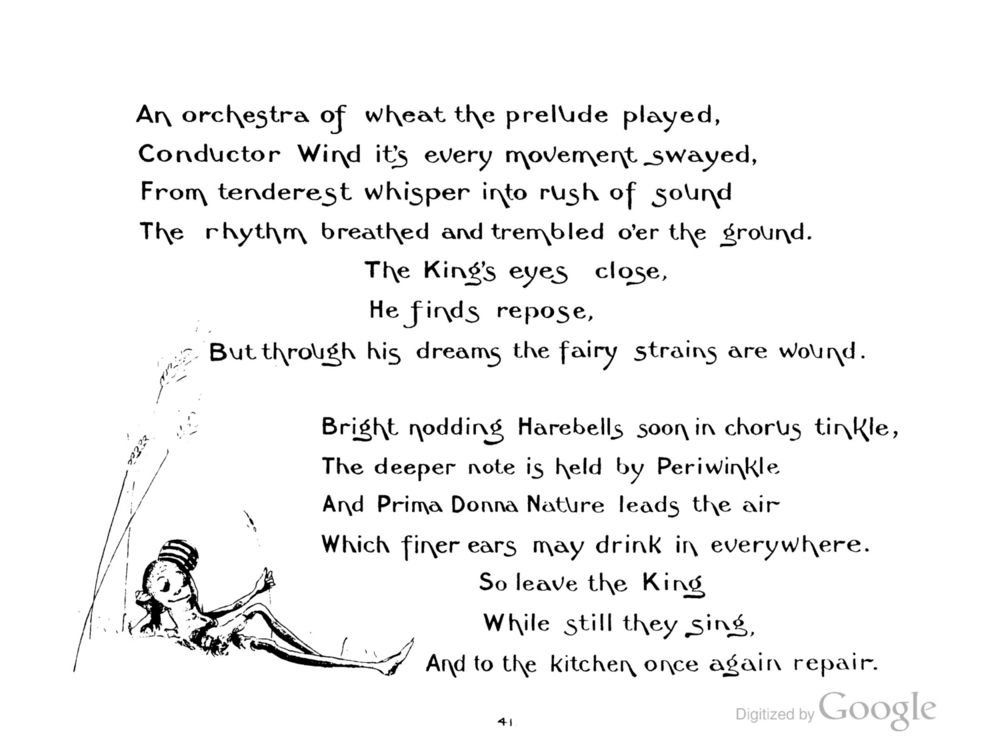 An orchestra of wheat the prelude played,
Conductor Wind it's every movement swayed,
From tenderest whisper into rush of sound
The rhythm breathed and trembled o'er the ground.
The King's eyes close,
He finds repose,
But through his dreams the fairy strains are wound.
Bright nodding Harebells soon in chorus tinkle,
The deeper note is held by Periwinkle
And Prima Donna Nature leads the air
Which finer ears may drink in everywhere.
So leave the King
While still they sing,
And to the kitchen once again repair.
41
Digitized by Google